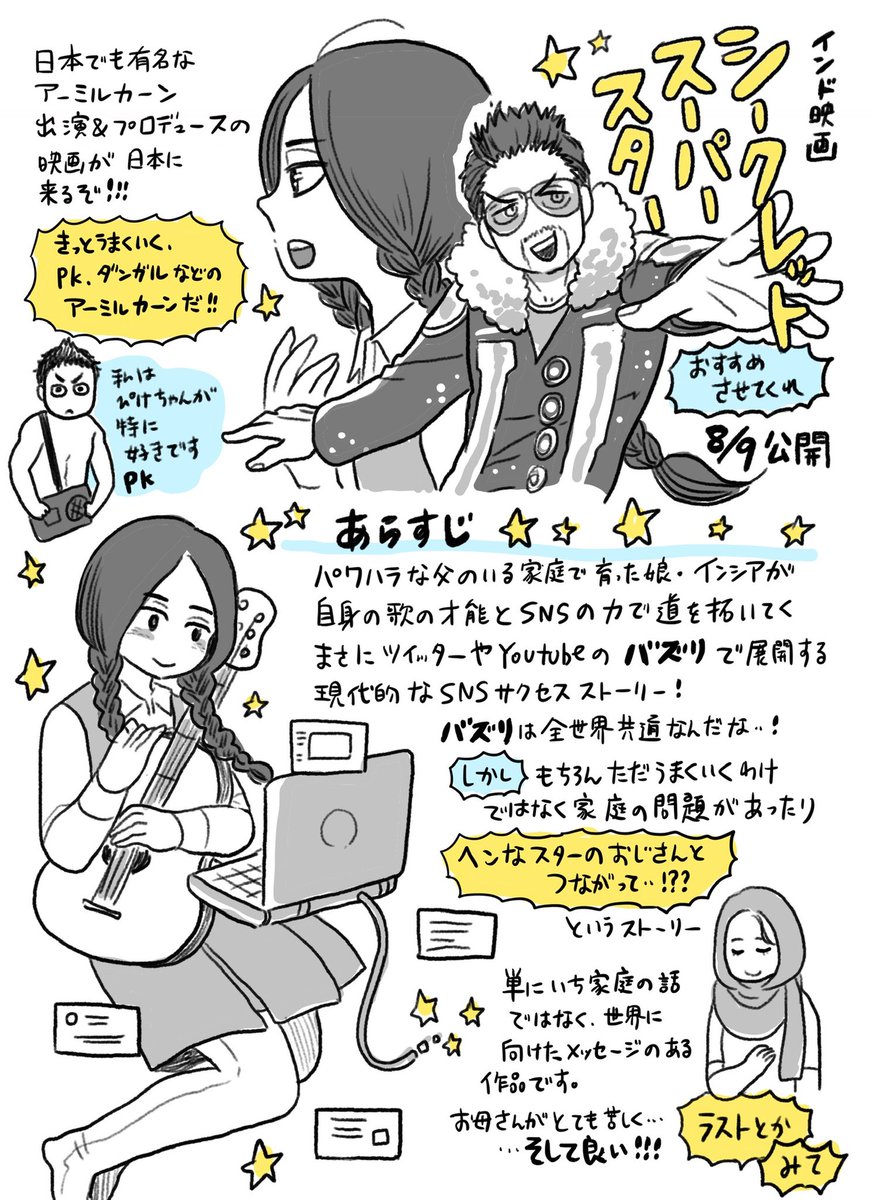 インド映画
シークレット
スーパー
スター
日本でも有名な
アーミルカーン
出演&プロデュースの
映画が日本に
来るぞ!!!
きっとうまくいく、
PK、ダンガルなどの
アーミルカーンだ!!
私は
ぴけちゃんが
特に
好きです
PK
おすすめ
させてくれ
8/9公開
あらすじ
パワハラな父のいる家庭で育った娘・インシアが
自身の歌の才能とSNSの力で道を拓いてく
まさにツイッターやYoutubeのバズリで展開する
現代的なSNSサクセスストーリー!
バズリは全世界共通なんだな…!
しかし もちろんただうまくいくわけ
ではなく家庭の問題があったり
ヘンなスターのおじさんと
つながって…!??
というストーリー
単にいち家庭の話
ではなく、世界に
向けたメッセージのある
作品です。
お母さんがとても苦しく…
…そして良い!!!
ラストとか
みて